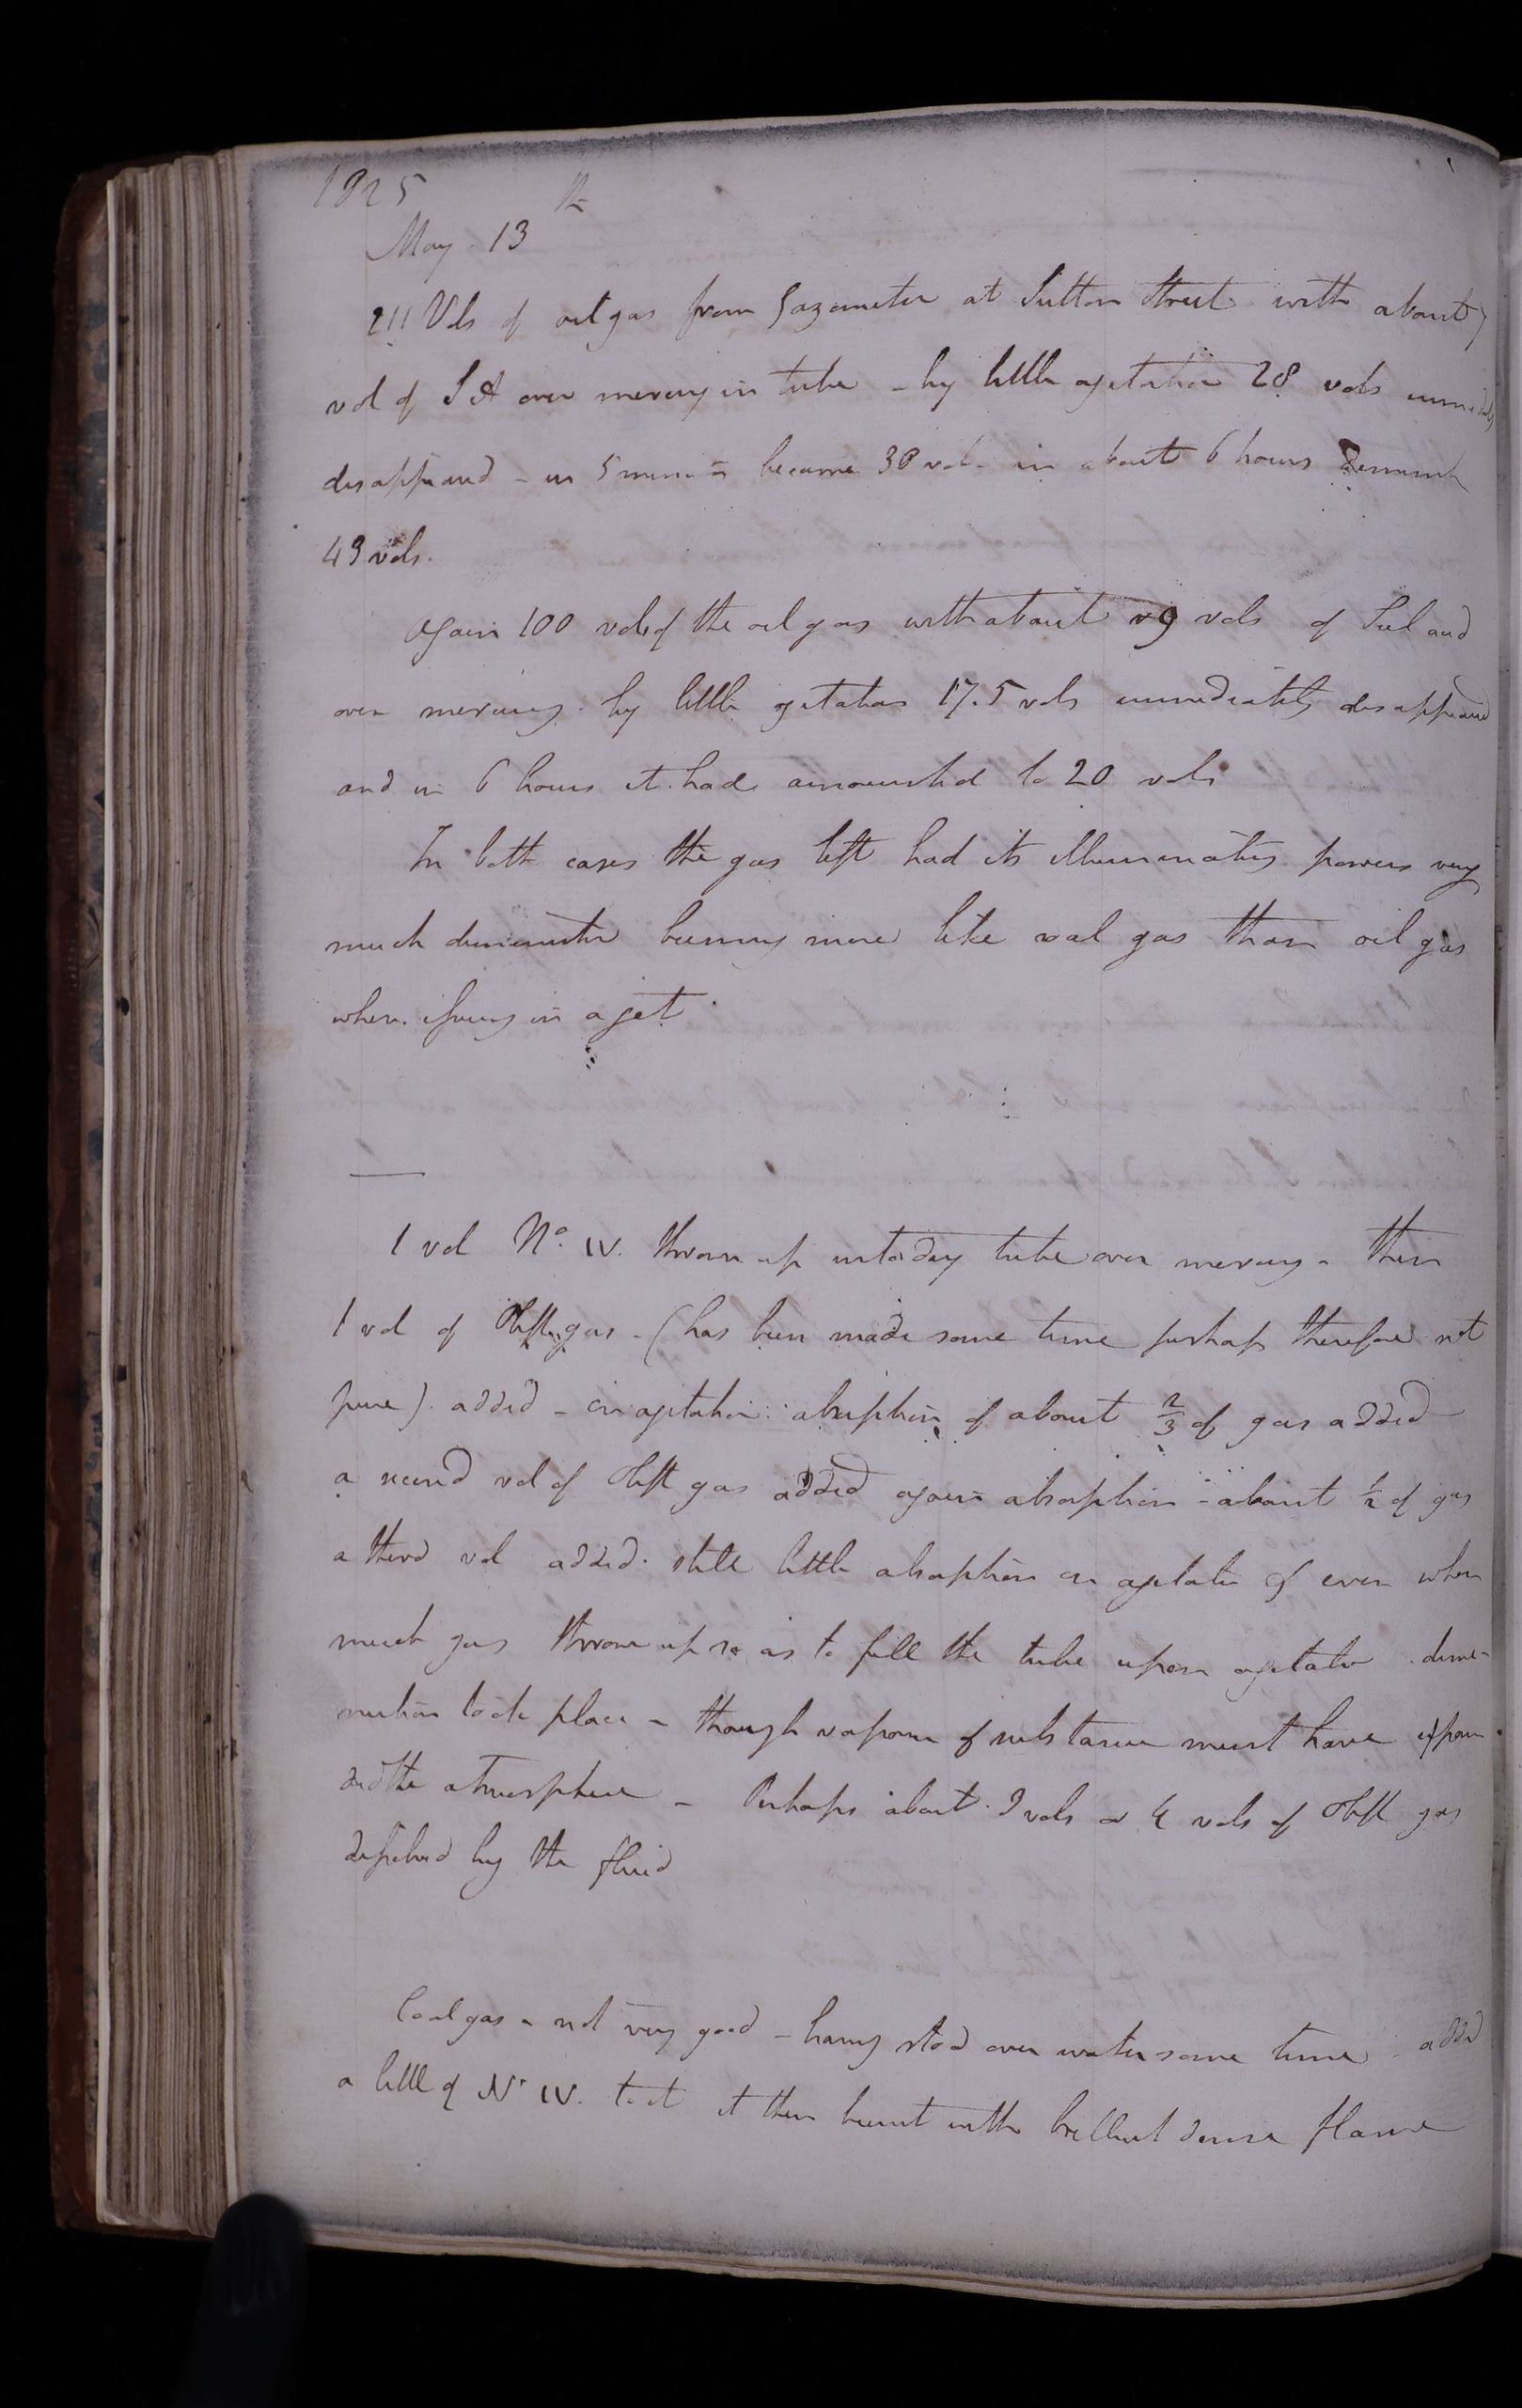 1825
May 13th
211 Vols of oil gas from Gazometer at Sutton Street with about
vol of S A over mercury in tube - by little agitation 28 vols immediately
disappeared - in 5 minutes became 38 vols in about 6 hours
43 vols.
Again 100 vols of the oil gas with about 9 vols of Sul acid
over mercury. by little agitation 17.5 vols immediately disappeared
and in 6 hours it had amounted to 20 vols
In both cases the gas left had its illuminating powers very
much diminished burning more like coal gas than oil gas
when issuing in a jet
1 vol No. IV. thrown up into dry tube over mercury - then
1 vol of Olefte gas - (has been made some time perhaps therefore not
pure). added - on agitation absorption of about 2/3 of gas added
a second vol of Oleft gas added again absorption - about 1/2 of gas
a third vol added. still little absorption on agitation & even when
much gas thrown up so as to fill the tube upon agitation dimi-
nution took place - though vapour of substance must have expan
ded the atmosphere - Perhaps about 3 vols or 4 vols of Oleft gas
dissolved by the fluid
Coal gas - not very good - having stood over water some time - added
a little of No IV. to it it then burnt with brilliant dense flame